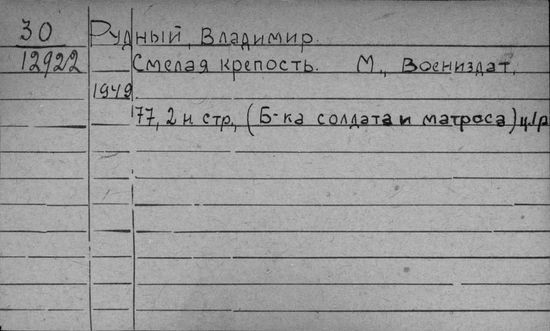 30 Рудный, Владимир.
12922 Смелая крепость. М., Воениздат,
1949
77, 2 н стр, (Б-ка солдата и матроса) ц.1р